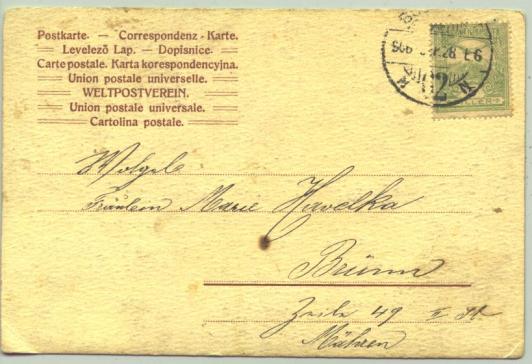 Postkarte. — Correspondenz-Karte.
Levelező Lap. — Dopisnice.
Carte postale. Karta korespondencyjna.
Union postale universelle.
WELTPOSTVEREIN.
Union postale universale.
Cartolina postale.
Wolgeb
Fräulein Marie Havelka
Brünn
Zeile 49 II St
Mähren